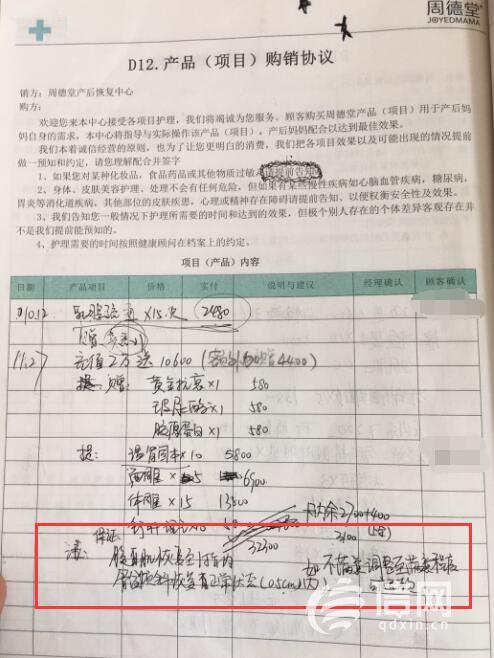 周德堂
JOYEDMAMA
D12.产品（项目）购销协议
销方：周德堂产后恢复中心
购方：
欢迎您来本中心接受各项目护理，我们将竭诚为您服务。顾客购买周德堂产品（项目）用于产后妈
妈自身的需求，本中心将指导与实际操作该产品（项目），产后妈妈配合以达到最佳效果。
我们本着诚信经营的原则，也为了让您更明白的消费，我们把各项目效果以及可能出现的情况提前
做一预知和约定，请您理解配合并签字
1、如果您对某种化妆品，食品药品或其他物质过敏，请提前告知。
2、身体、皮肤美容护理，处理不会有任何危险，但如果有某些慢性疾病如心脑血管疾病，糖尿病，
胃炎等消化道疾病，其他部位的皮肤疾患，心理或精神存在障碍请提前告知、以便权衡安全性及效果。
3、我们告知您一般情况下护理所需要的时间和达到的效果，但极个别人存在的个体差异客观存在并
不是我们提前能预知的。
4、护理需要的时间按照健康顾问在档案上的约定。
项目（产品）内容
日期 产品项目 价格 实付 说明与建议 经理确认 顾客确认
10.12 乳腺疏通 ×15次 2480
11.27 充值2万送10600
赠：黄金 ×1 580
玻尿酸 ×1 580
胶原蛋白 ×1 580
提：温肾固本 ×10 5800
×5 6900
体雕 ×15 13500
余2700+400
32300 3100
注：保证腹直肌恢复至1指内 如不满意调整至满意程度
骨盆 恢复正常状态（0.5cm以内）
信网
qdxin.cn